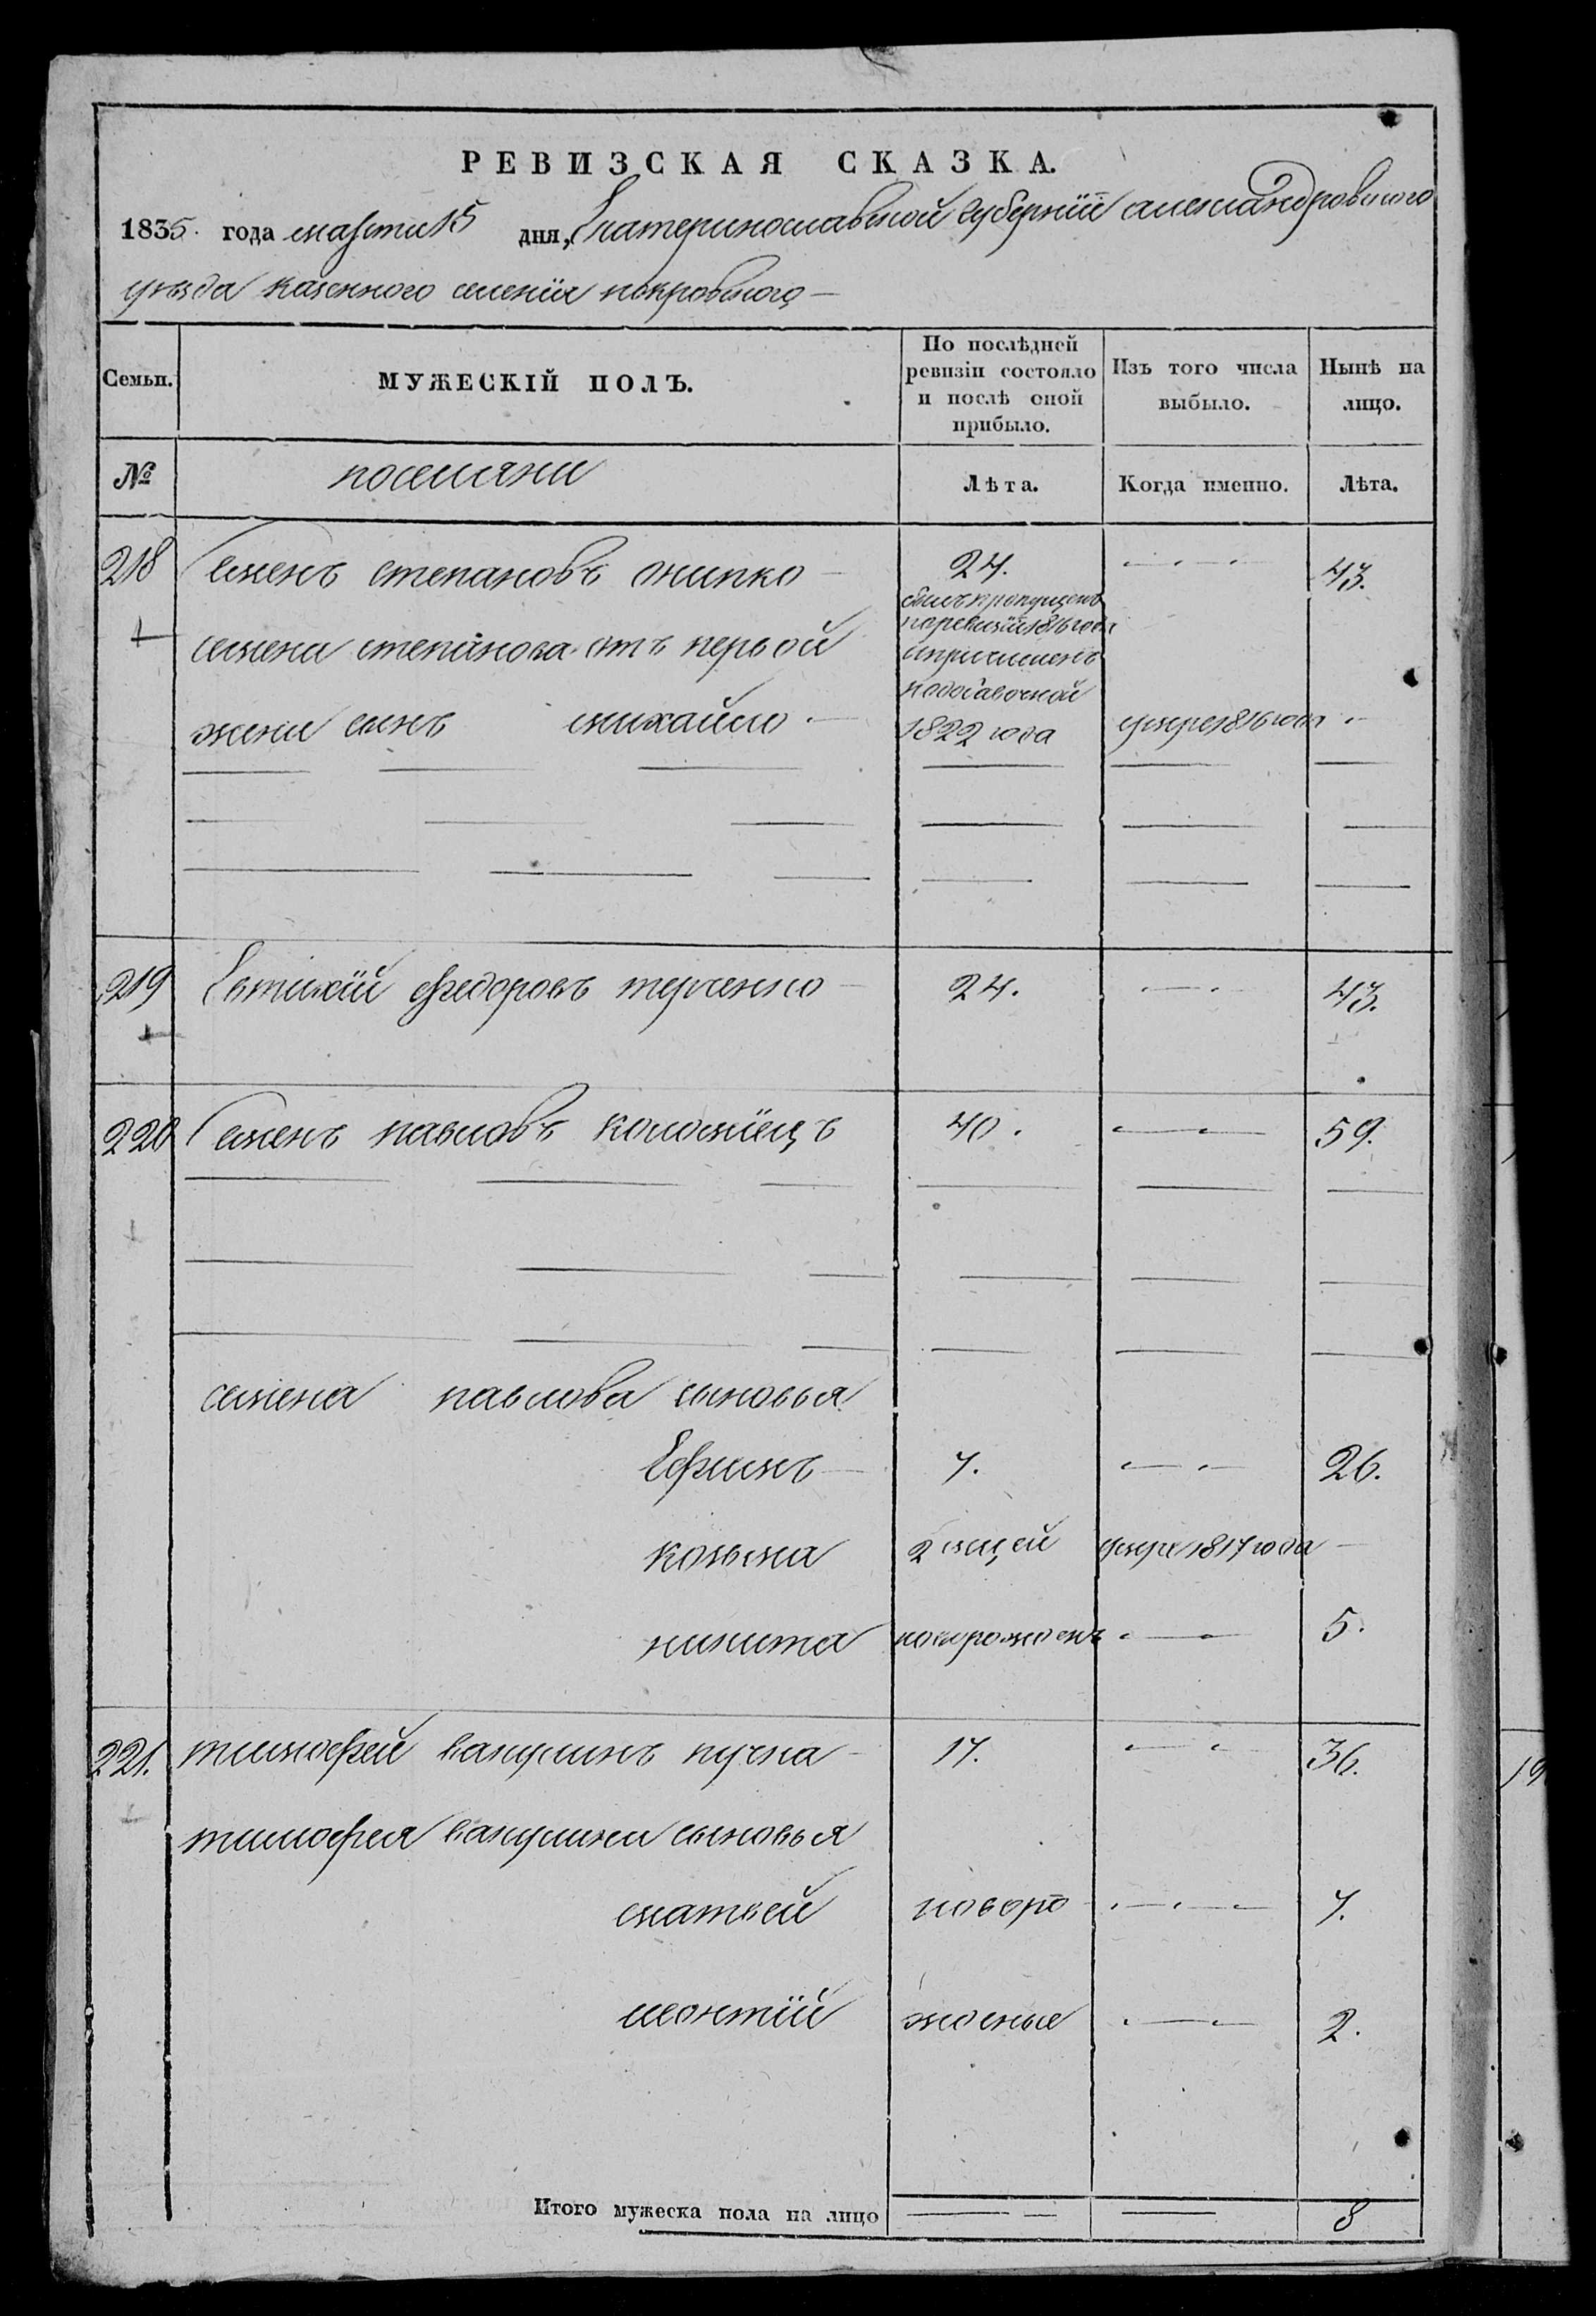 РЕВИЗСКАЯ СКАЗКА.
1835. года марта 15 дня, Екатеринославской губернiи александровского
уѣзда казенного селенiя покровского
Семьи.
МУЖЕСКІЙ ПОЛЪ.
По послѣдней ревизіи состояло и послѣ оной прибыло.
Изъ того числа выбыло.
Нынѣ на лицо.
№ поселяни Лѣта. Когда именно. Лѣта.
218 Семенъ степановъ онипко 24. 43.
былъ пропущенъ
по ревизiи 1816 года
семена степанова отъ первой и причисленъ
по добавочной
жени сынъ михайло 1822 года умре 1816 года
219 Евтихiй федоровъ терченко 24. 43.
220 Семенъ павловъ коломiецъ 40. 59.
семена павлова сыновья
Ефимъ 7. 26.
козьма 2 мцей умре 1817 года
никита новорожденъ 5.
221. тимофей вакулинъ пучка 17. 36.
тимофея вакулини сыновья
матвей новоро 7.
леонтiй жденые 2.
Итого мужеска пола на лицо 8